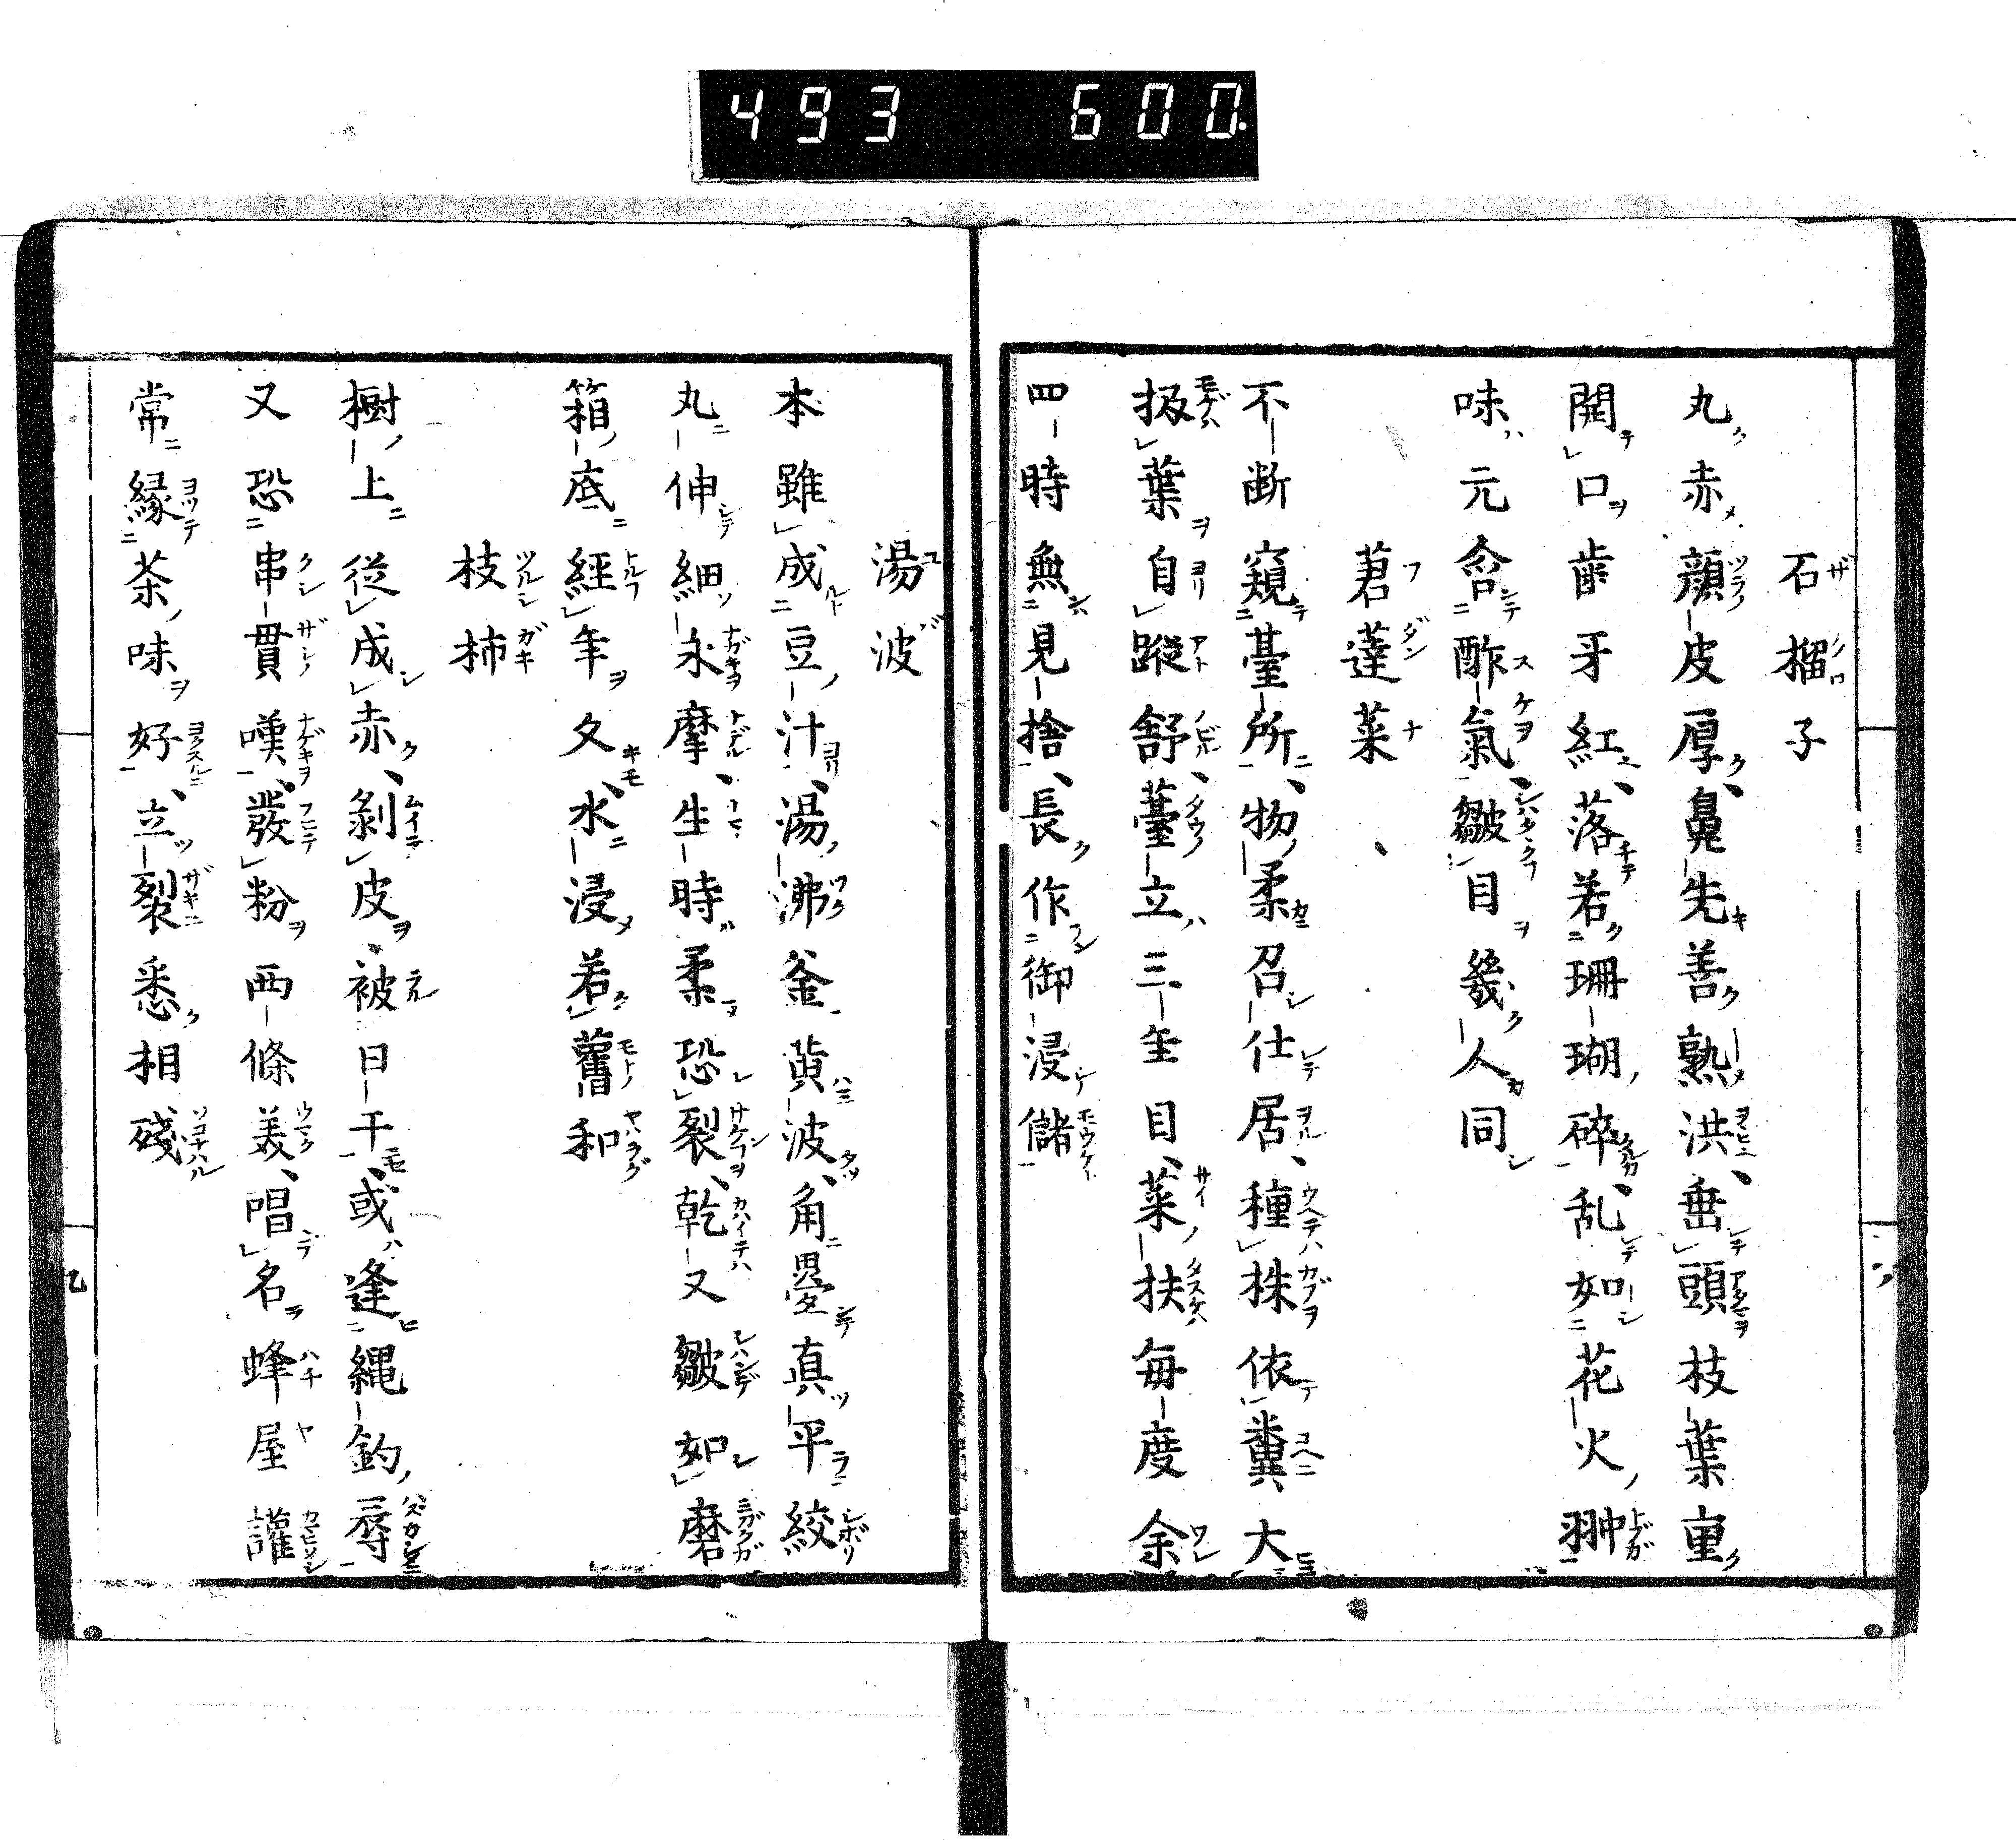 493 600.
石榴子
丸赤顔皮厚鼻先善熟洪垂頭枝葉重
開口歯牙紅落若珊瑚碎乱如花火翀
味元含酢氣皺目幾人同
莙薘菜
不断窺臺所物柔召仕居種株依糞大
扱葉自蹤舒薹立三年目菜扶毎度余
四時無見捨長作御浸儲
湯波
本雖成豆汁湯沸釜黄波角疉真平絞
丸伸細永摩生時柔恐裂乾又皺如磨
箱底經年久水浸若舊和
枝柿
樹上從成赤剝皮被日干或逢縄釣辱
又恐串貫嘆發粉両條美唱名蜂屋讙
常縁茶味好立裂悉相殘